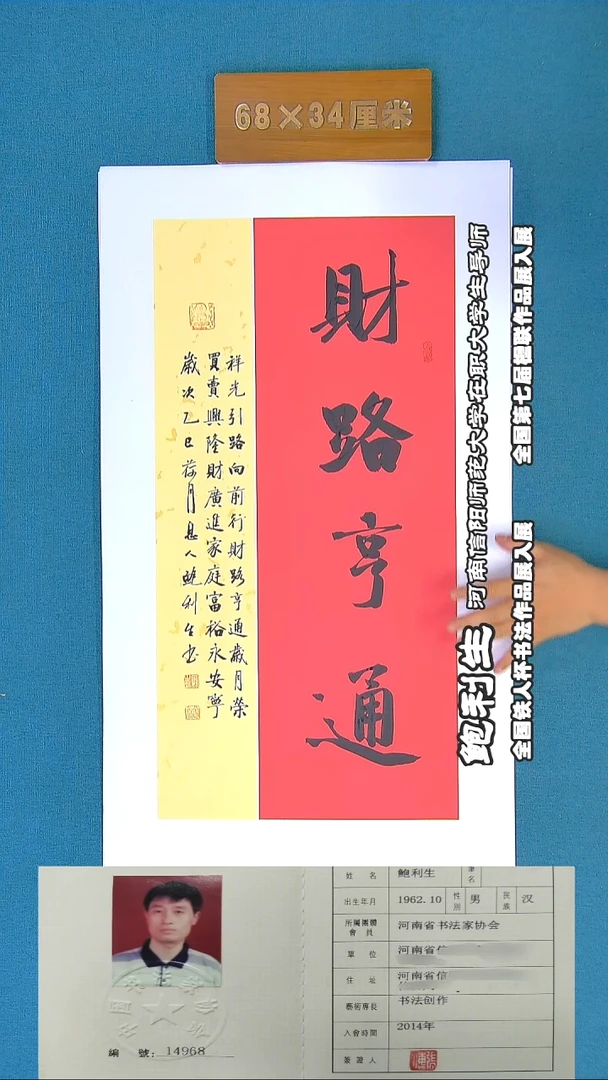 68×34厘米
財路亨通
祥光引路向前行財路亨通歲月榮
買賣興隆財廣進家庭富裕永安寧
歲次乙巳荷月息人鮑利生书
鲍利生 河南信阳师范大学在职大学生导师
全国铁人杯书法作品展入展 全国第七届楹联作品展入展
姓名 鲍利生 筆名
出生年月 1962.10 性别 男 民族 汉
所屬團體會員 河南省书法家协会
單位 河南省信
住址 河南省信
藝術專長 书法创作
入會時間 2014年
簽證人
編號: 14968